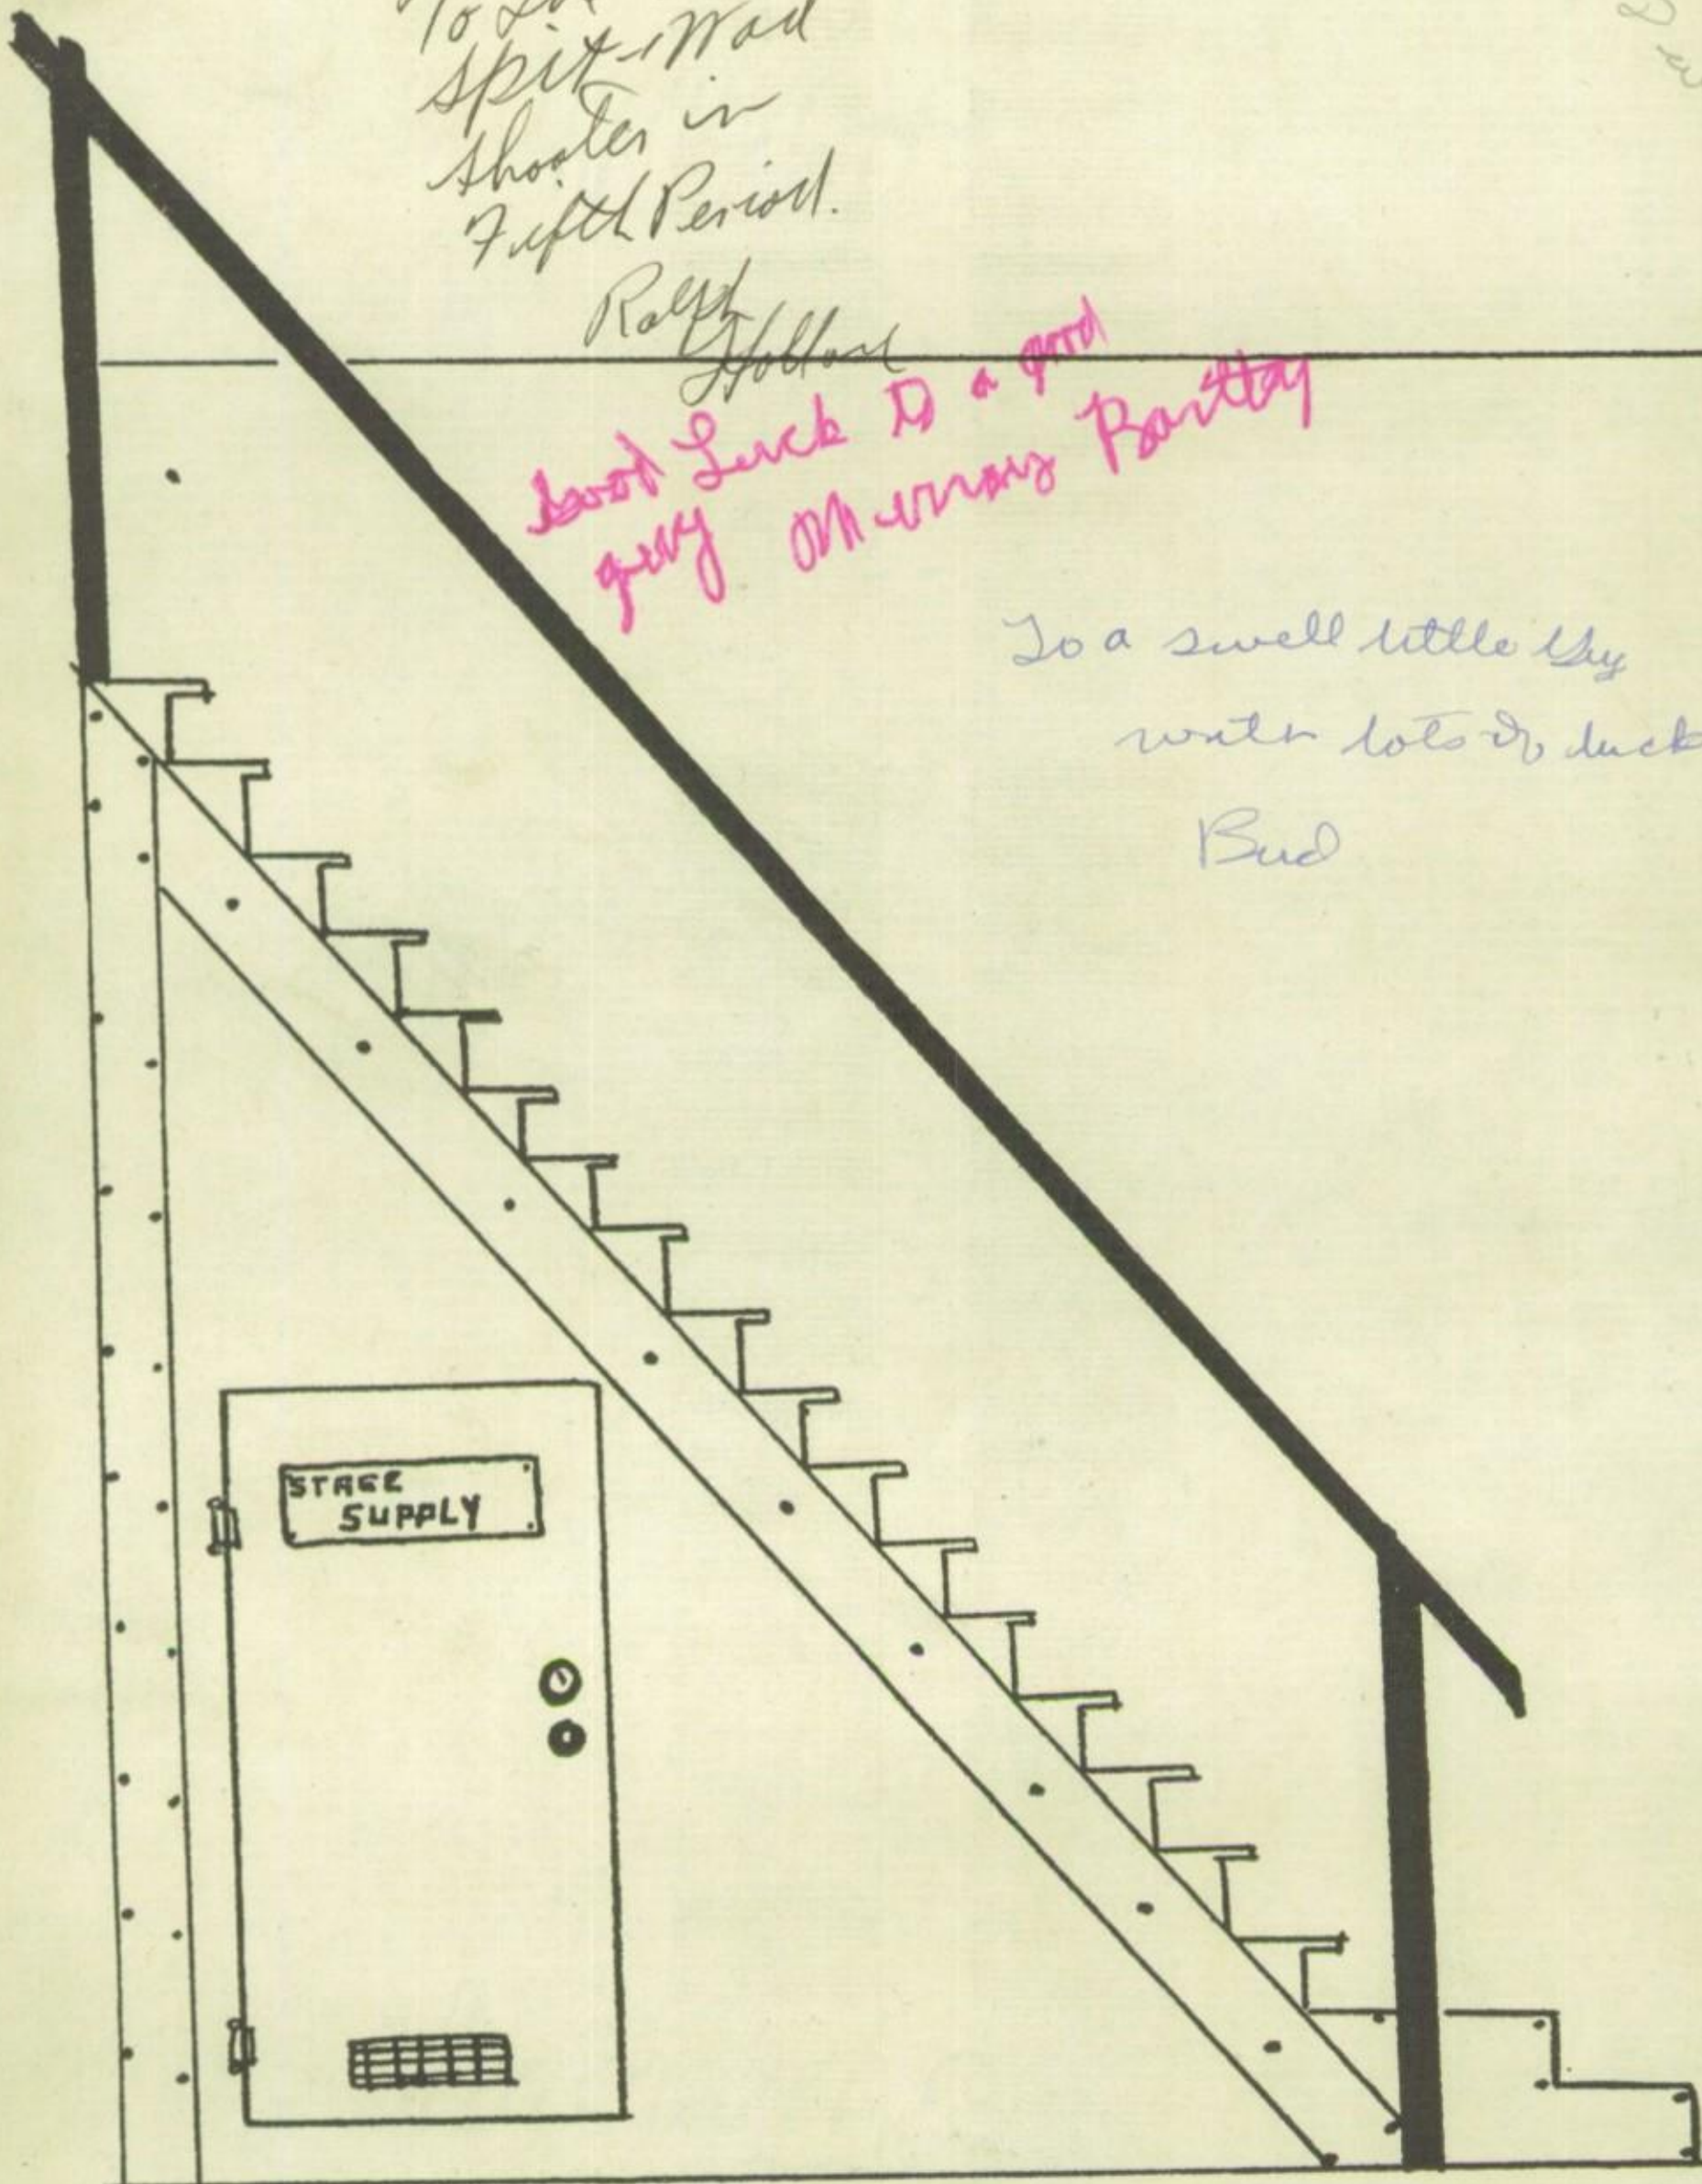 To
Spit-Wad
Shooter in
Fifth Period.
Ralph
Holland
Good Luck to a good
guy Murray Bartley
To a swell little Guy
with lots of luck
Bud
STAGE
SUPPLY